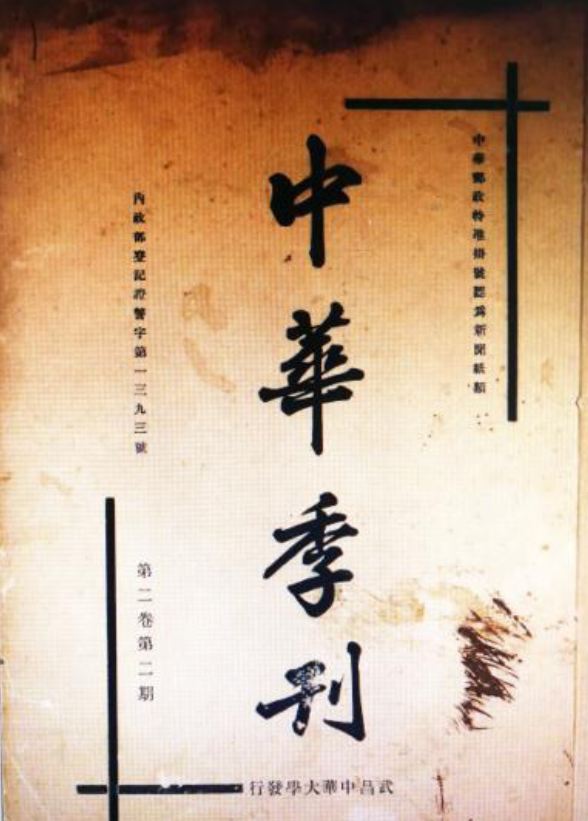 中華郵政特准掛號認爲新聞紙類
中華季刊
內政部登記證警字第一三九三號
第二卷第二期
武昌中華大學發行